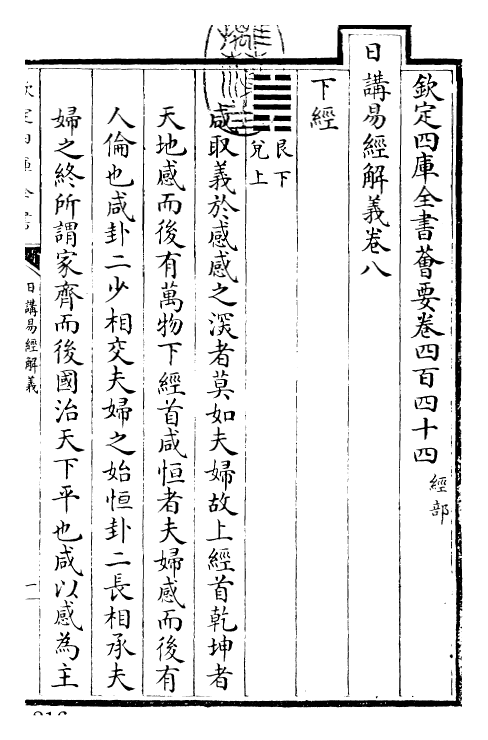 欽定四庫全書薈要卷四百四十四
經部
日講易經解義卷八
下經
艮下
兌上
咸取義於感感之深者莫如夫婦故上經首乾坤者
天地感而後有萬物下經首咸恒者夫婦感而後有
人倫也咸卦二少相交夫婦之始恒卦二長相承夫
婦之終所謂家齊而後國治天下平也咸以感為主
日講易經解義
一